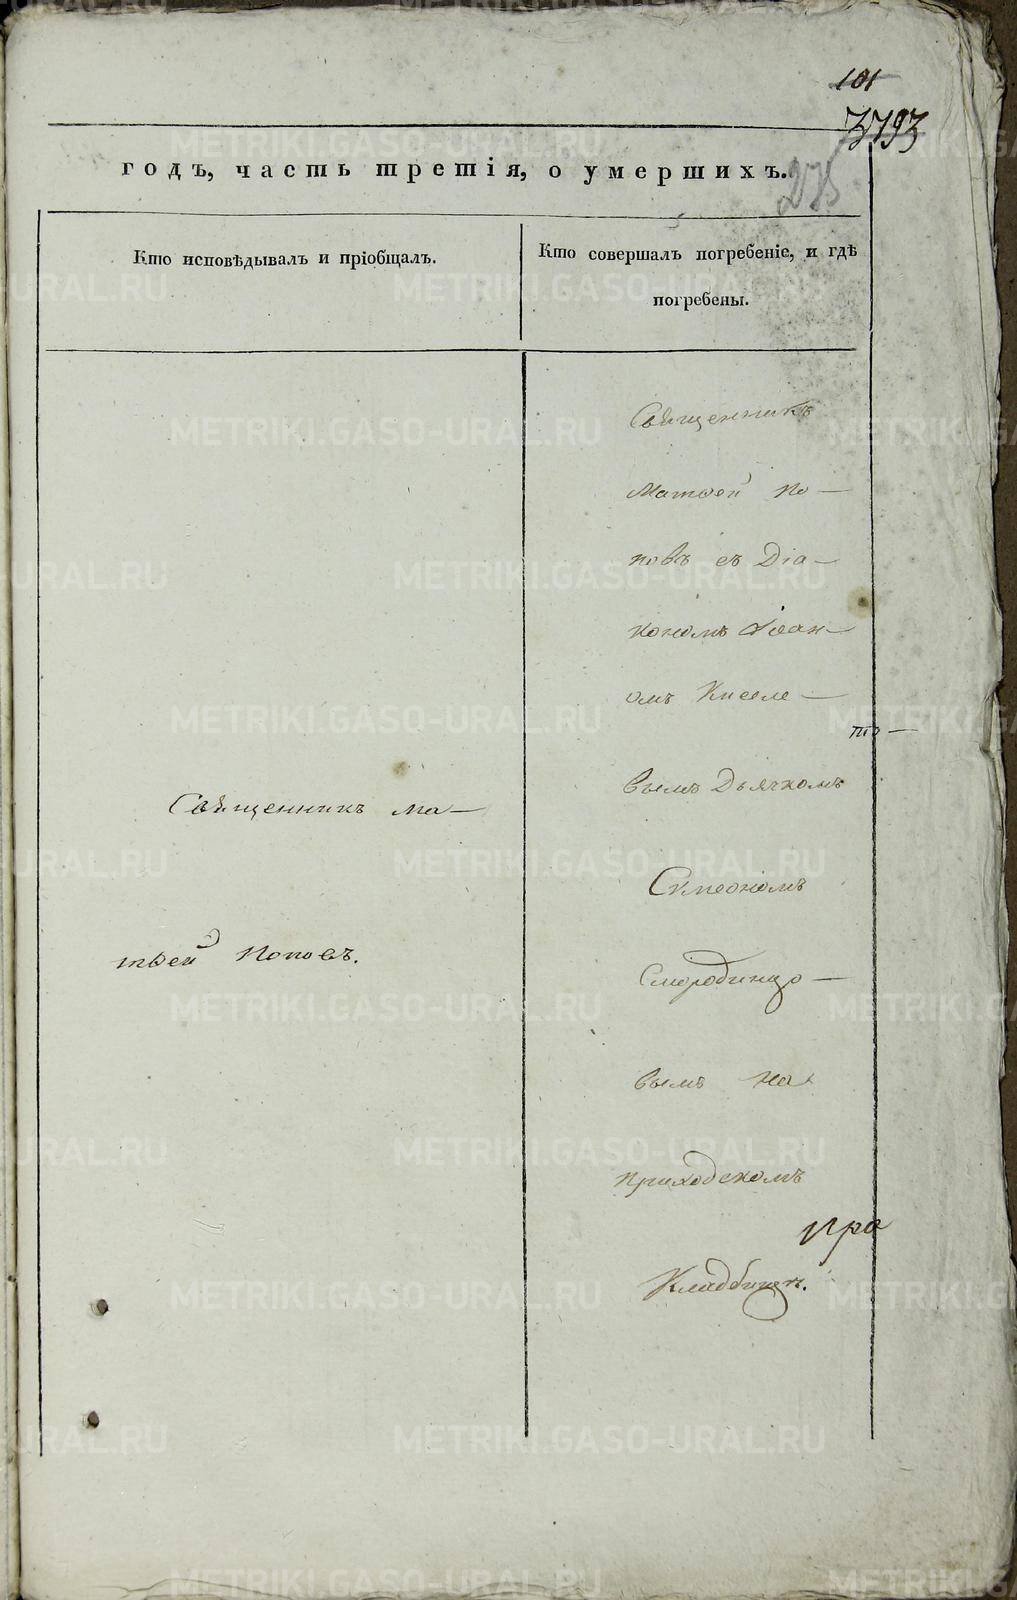 101
3793
годъ, часть третія, о умершихъ.
275
Кто исповѣдывалъ и пріобщалъ.
Кто совершалъ погребеніе, и гдѣ
погребены.
Священникъ Ма–
твей Поповъ.
Священникъ
Матвей По–
повъ съ Діа–
кономъ Іоан–
омъ Киселе–
то–
вымъ Дьячкомъ
Симеономъ
Смородинцо–
вымъ на
приходскомъ
пра
Кладбищѣ.
METRIKI.GASO-URAL.RU